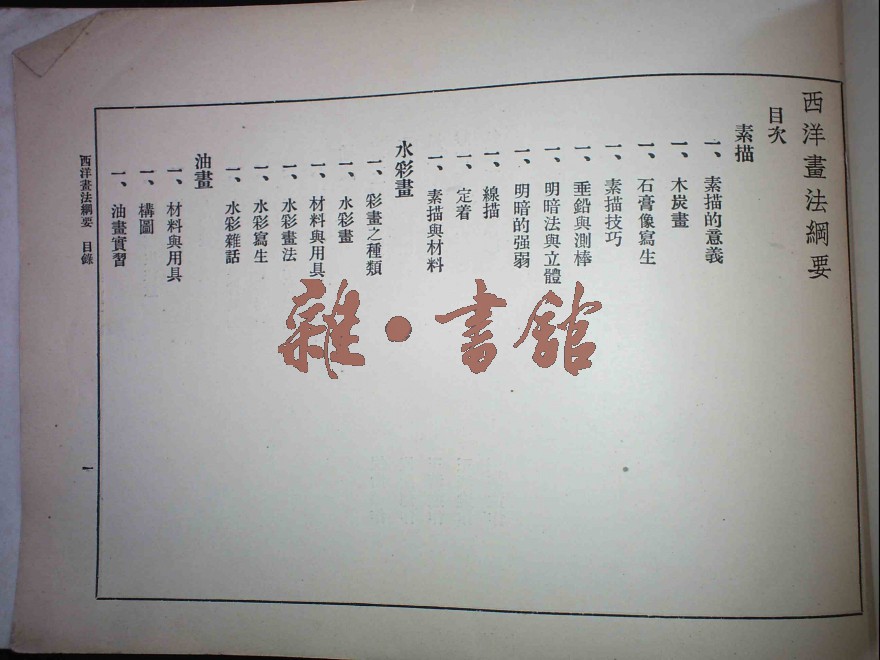 西洋畫法綱要
目次
素描
一、素描的意義
一、木炭畫
一、石膏像寫生
一、素描技巧
一、垂鉛與測棒
一、明暗法與立體
一、明暗的强弱
一、線描
一、定着
一、素描與材料
水彩畫
一、彩畫之種類
一、水彩畫
一、材料與用具
一、水彩畫法
一、水彩寫生
一、水彩雜話
油畫
一、材料與用具
一、構圖
一、油畫實習
西洋畫法綱要 目錄
一
雜·書館